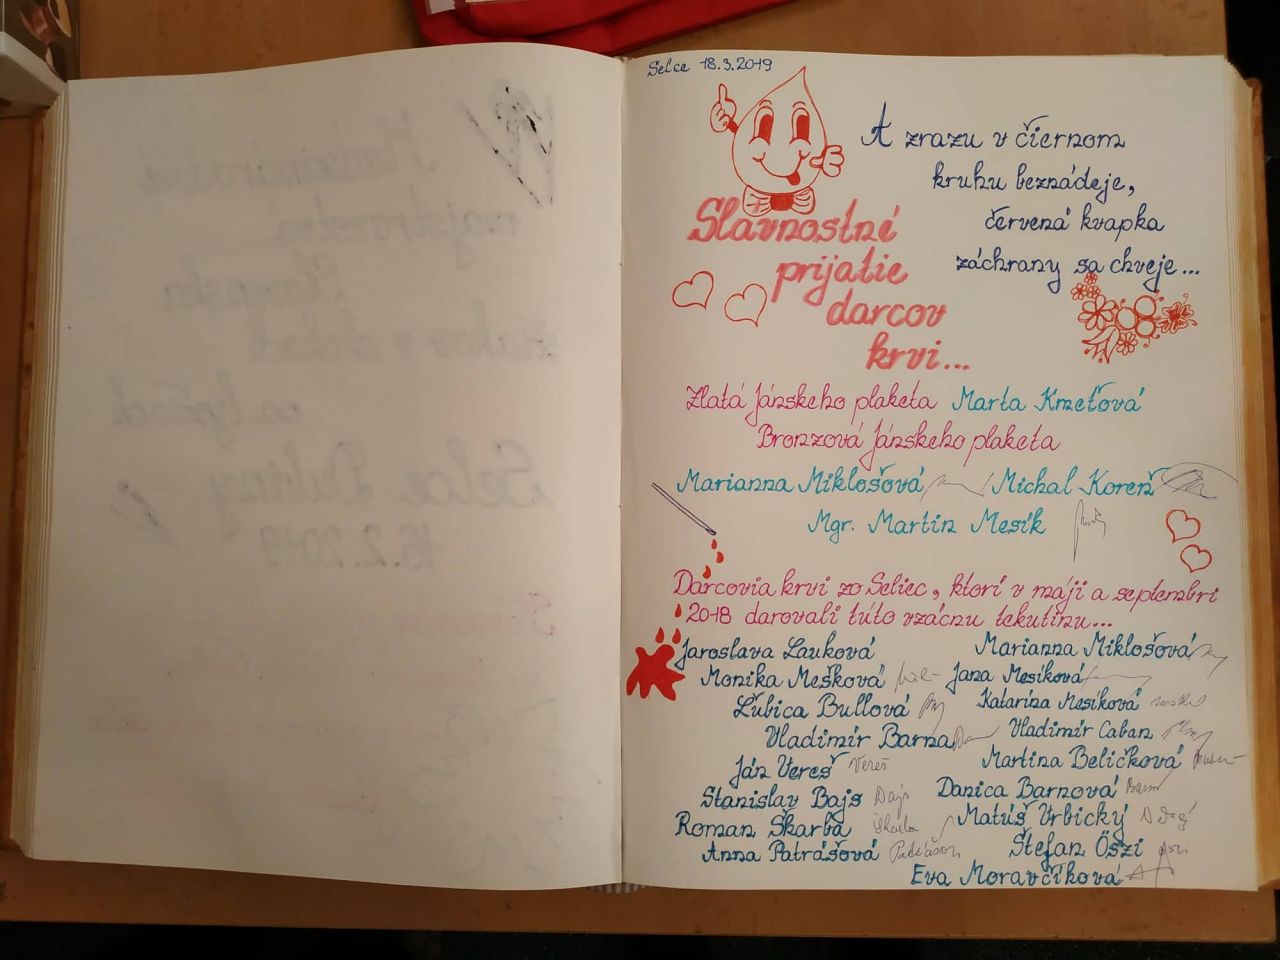 Selce 18.3.2019
A zrazu v čiernom
kruhu beznádeje,
červená kvapka
záchrany sa chveje...
Slavnostné
prijatie
darcov
krvi...
Zlatá Jánskeho plaketa Marta Kmeťová
Bronzová Jánskeho plaketa
Marianna Miklošová Michal Koreň
Mgr. Martin Mesík
Darcovia krvi zo Seliec, ktorí v máji a septembri
2018 darovali túto vzácnu tekutinu...
Jaroslava Lauková Marianna Miklošová
Monika Mešková Jana Mesíková
Ľubica Bullová Katarína Mesíková
Vladimír Barna Vladimír Caban
Ján Vereš Vereš Martina Beličková
Stanislav Bajs Bajs Danica Barnová
Roman Škarba Škarba Matúš Vrbický
Anna Patrášová Štefan Öszi
Eva Moravčíková